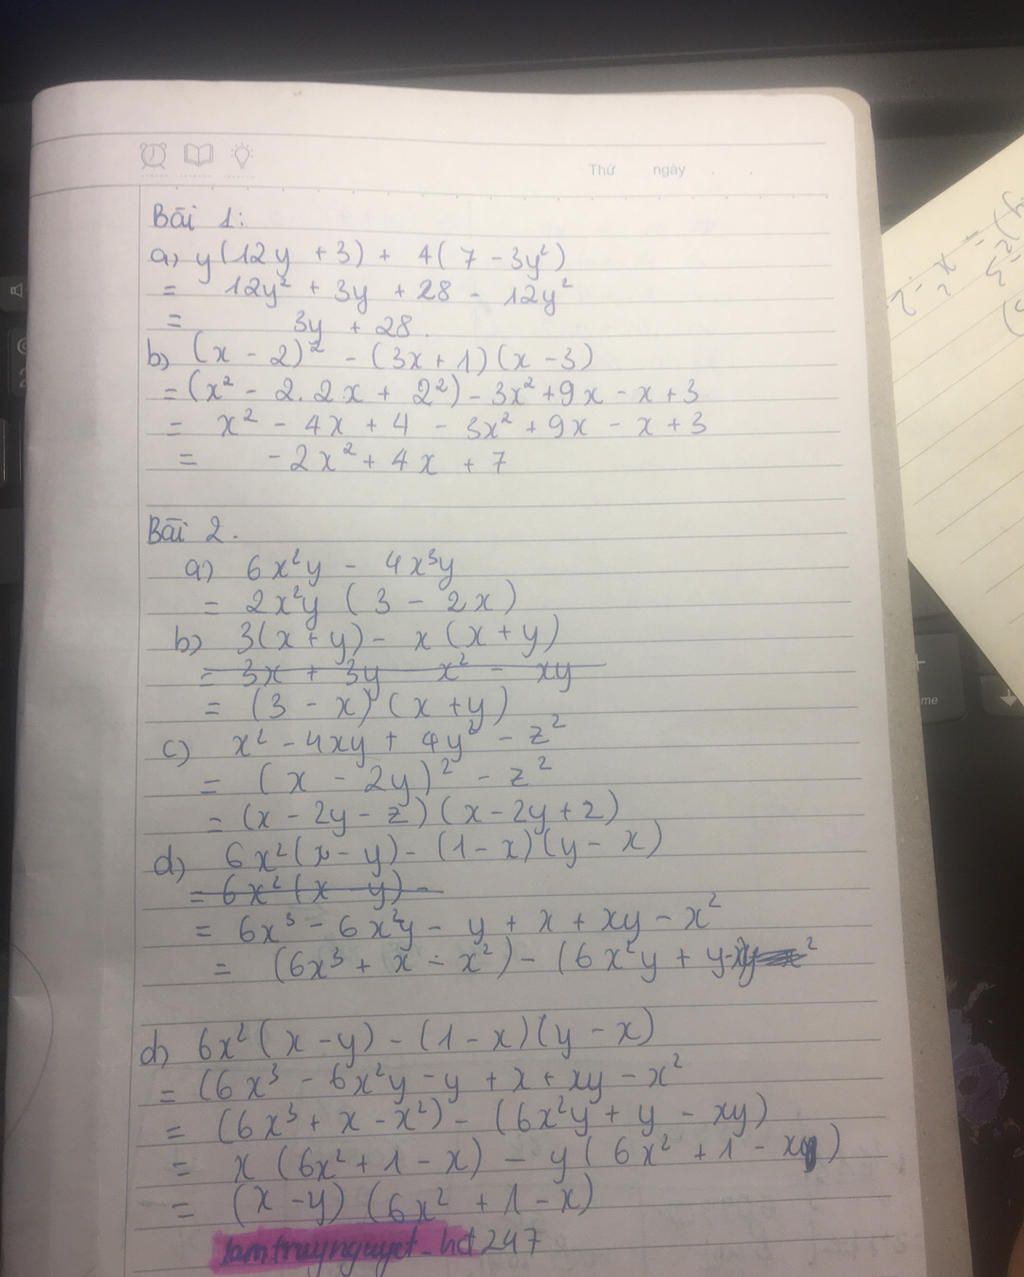 Thứ ngày
Bài 1:
a) y(12y + 3) + 4(7 - 3y²)
= 12y² + 3y + 28 - 12y²
= 3y + 28.
b) (x - 2)² - (3x + 1)(x - 3)
= (x² - 2.2x + 2²) - 3x² + 9x - x + 3
= x² - 4x + 4 - 3x² + 9x - x + 3
= -2x² + 4x + 7
Bài 2.
a) 6x²y - 4x³y
= 2x²y (3 - 2x)
b) 3(x + y) - x(x + y)
= 3x + 3y - x² - xy
= (3 - x)(x + y)
c) x² - 4xy + 4y² - z²
= (x - 2y)² - z²
= (x - 2y - z)(x - 2y + z)
d) 6x²(x - y) - (1 - x)(y - x)
= 6x²(x - y) -
= 6x³ - 6x²y - y + x + xy - x²
= (6x³ + x - x²) - (6x²y + y - xy
d) 6x²(x - y) - (1 - x)(y - x)
= (6x³ - 6x²y - y + x + xy - x²
= (6x³ + x - x²) - (6x²y + y - xy)
= x (6x² + 1 - x) - y (6x² + 1 - x)
= (x - y)(6x² + 1 - x)
lamtruynguyet_hd247